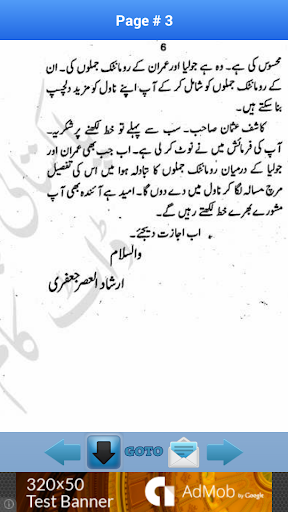 Page # 3
6
محسوس کی ہے۔ وہ ہے جولیا اور عمران کے رومانٹک جملوں کی۔ ان
کے رومانٹک جملوں کو شامل کر کے آپ اپنے ناول کو مزید دلچسپ
بنا سکتے ہیں۔
کاشف عثمان صاحب۔ سب سے پہلے تو خط لکھنے پر شکریہ۔
آپ کی فرمائش میں نے نوٹ کر لی ہے۔ اب جب بھی عمران اور
جولیا کے درمیان رومانٹک جملوں کا تبادلہ ہوا میں اس کی تفصیل
مرچ مسالہ لگا کر ناول میں دے دوں گا۔ امید ہے آئندہ بھی آپ
مشورے بھرے خط لکھتے رہیں گے۔
اب اجازت دیجئے۔
والسلام
ارشاد العصر جعفری
GOTO
320×50
Test Banner
AdMob by Google